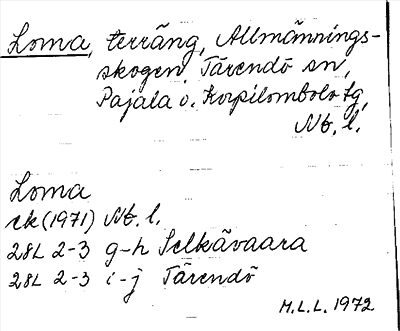 Loma, terräng, Allmännings-
skogen, Tärendö sn,
Pajala o. Korpilombolo tg,
Nb. l.
Loma
ek (1971) Nb. l.
28L 2-3 g-h Selkävaara
28L 2-3 i-j Tärendö
M.L.L. 1972